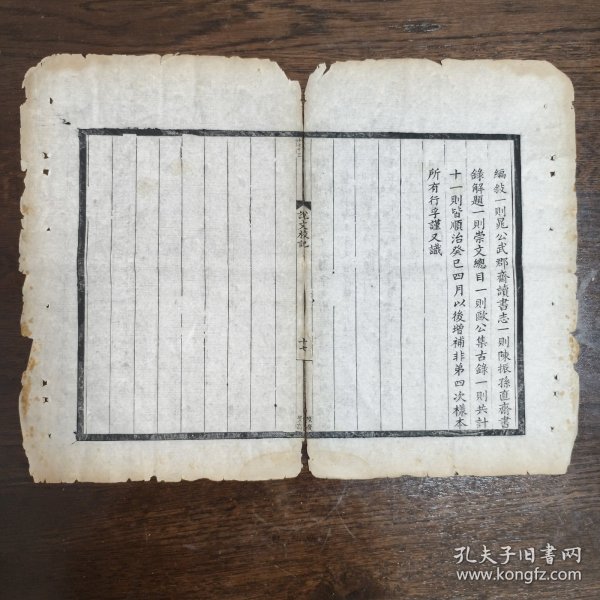 編敍一則晁公武郡齋讀書志一則陳振孫直齋書
錄解題一則崇文總目一則歐公集古錄一則共計
十一則皆順治癸巳四月以後增補非第四次樣本
所有行孚謹又識
說文校記
十七
孔夫子旧书网
www.kongfz.com